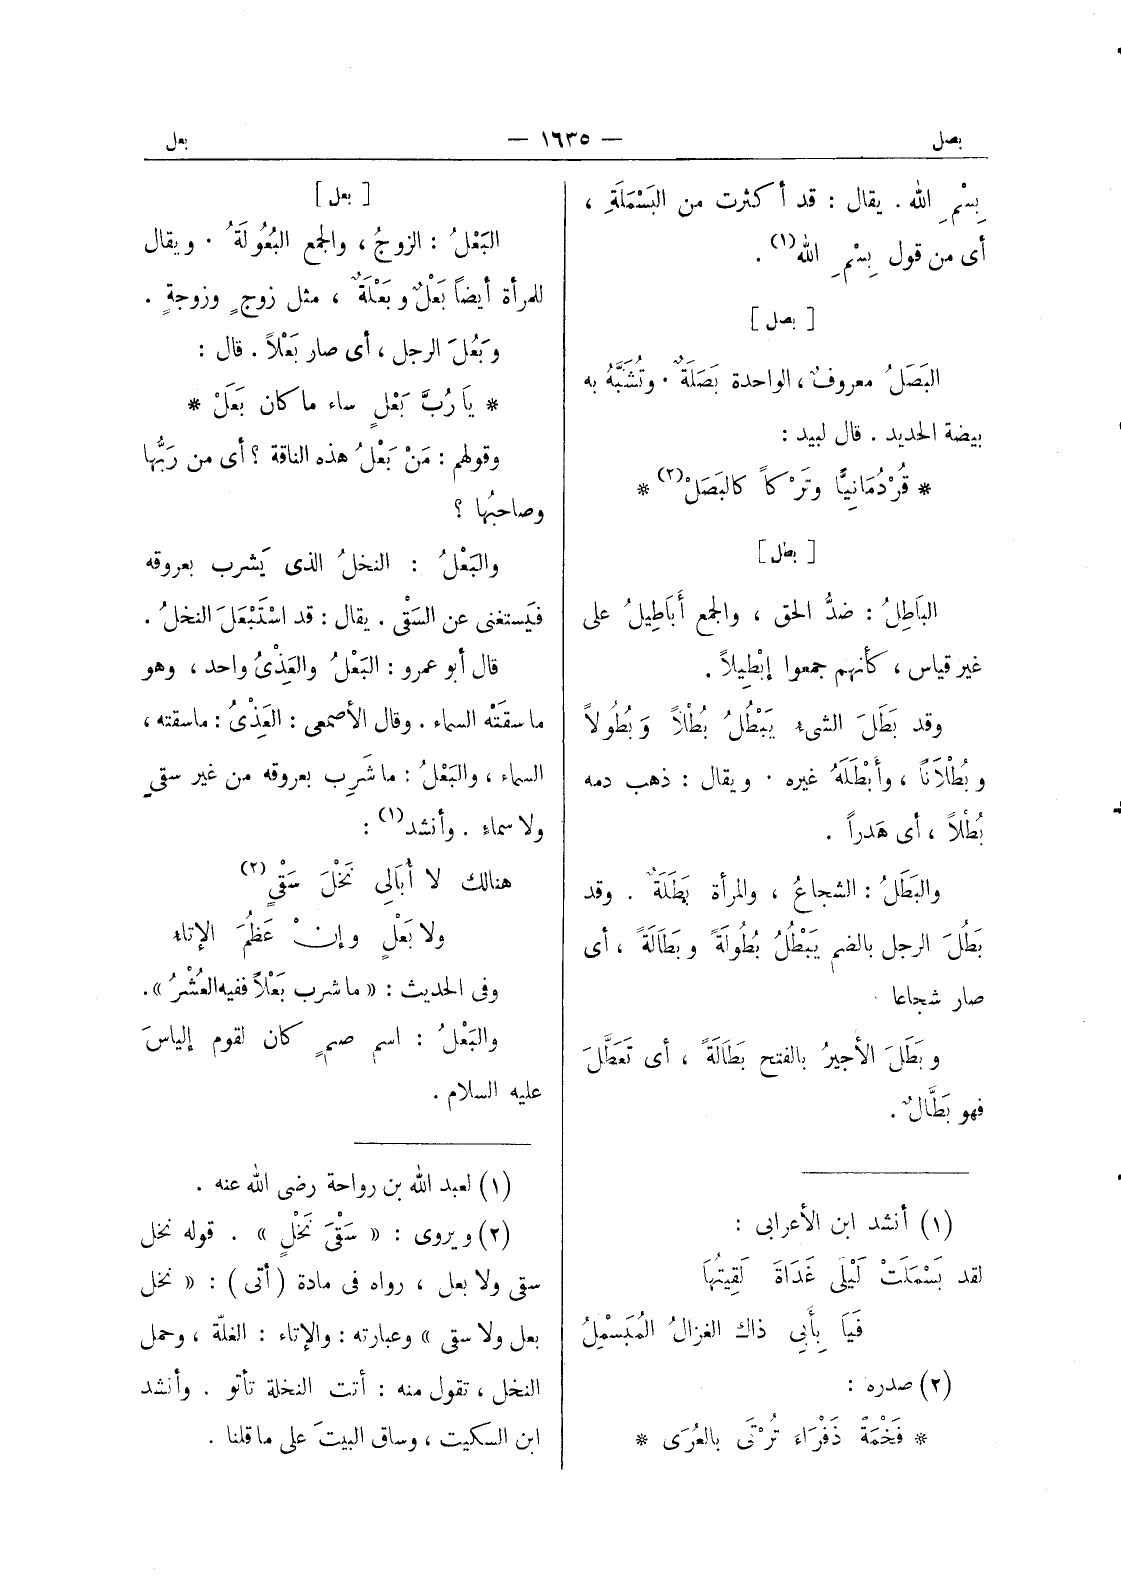 بصل — ١٦٣٥ — بعل
بِسْمِ الله . يقال : قد أكثرت من البَسْمَلَةِ ،
أى من قول بِسْمِ الله(١) .
[ بصل ]
البَصَلُ معروفٌ ، الواحدة بَصَلَةٌ . وتُشَبَّهُ به
بيضة الحديد . قال لبيد :
* قُرْدُمَانِيًّا وتَرْكاً كالبَصَلْ(٢) *
[ بطل ]
البَاطِلُ : ضدُّ الحق ، والجمع أَبَاطِيلُ على
غير قياس ، كأنهم جمعوا إبْطِيلاً .
وقد بَطَلَ الشىء يَبْطُلُ بُطْلاً وَبُطُولاً
وبُطْلَاناً ، وأَبْطَلَهُ غيره . ويقال : ذهب دمه
بُطْلاً ، أى هَدراً .
والبَطَلُ : الشجاعُ ، والمرأة بَطَلَةٌ . وقد
بَطُلَ الرجل بالضم يَبْطُلُ بُطُولَةً وبَطَالَةً ، أى
صار شجاعا .
وبَطَلَ الأجيرُ بالفتح بَطَالَةً ، أى تَعَطَّلَ
فهو بَطَّالٌ .
(١) أنشد ابن الأعرابى :
لقد بَسْمَلَتْ لَيْلَى غَدَاةَ لَقِيتُهَا
فَيَا بِأَبِى ذاك الغزالُ المُبَسْمِلُ
(٢) صدره :
* فَخْمَةً ذَفْرَاءَ تُرْتَى بالعُرَى *
[ بعل ]
البَعْلُ : الزوجُ ، والجمع البُعُولَةُ . ويقال
للمرأة أيضاً بَعْلٌ وبَعْلَةٌ ، مثل زوجٍ وزوجةٍ .
وبَعُلَ الرجل ، أى صار بَعْلاً . قال :
* يا رُبَّ بَعْلٍ ساء ما كان بَعَلْ *
وقولهم : مَنْ بَعْلُ هذه الناقة ؟ أى من رَبُّها
وصاحبُها ؟
والبَعْلُ : النخلُ الذى يَشرب بعروقه
فيَستغنى عن السَقْى . يقال : قد اسْتَبْعَلَ النخلُ .
قال أبو عمرو : البَعْلُ والعَذِىُ واحد ، وهو
ما سقَتْه السماء . وقال الأصمعى : العَذْىُ : ما سقته ،
السماء ، والبَعْلُ : ما شَرِب بعروقه من غير سقىٍ
ولا سماء . وأنشد(١) :
هنالك لا أُبَالِى نَخْلَ سَقْىٍ(٢)
ولا بَعْلٍ وإنْ عَظُمَ الإتاء
وفى الحديث : « ما شرب بَعْلاً ففيه العُشْرُ » .
والبَعْلُ : اسم صمٍ كان لقوم إلياسَ
عليه السلام .
(١) لعبد الله بن رواحة رضى الله عنه .
(٢) ويروى : « سَقْىَ نَخْلٍ » . قوله نخل
سقى ولا بعل ، رواه فى مادة ( أتى ) : « نخل
بعل ولا سقى » وعبارته : والإتاء : الغلّة ، وحمل
النخل ، تقول منه : أتت النخلة تأتو . وأنشد
ابن السكيت ، وساق البيتَ على ما قلنا .